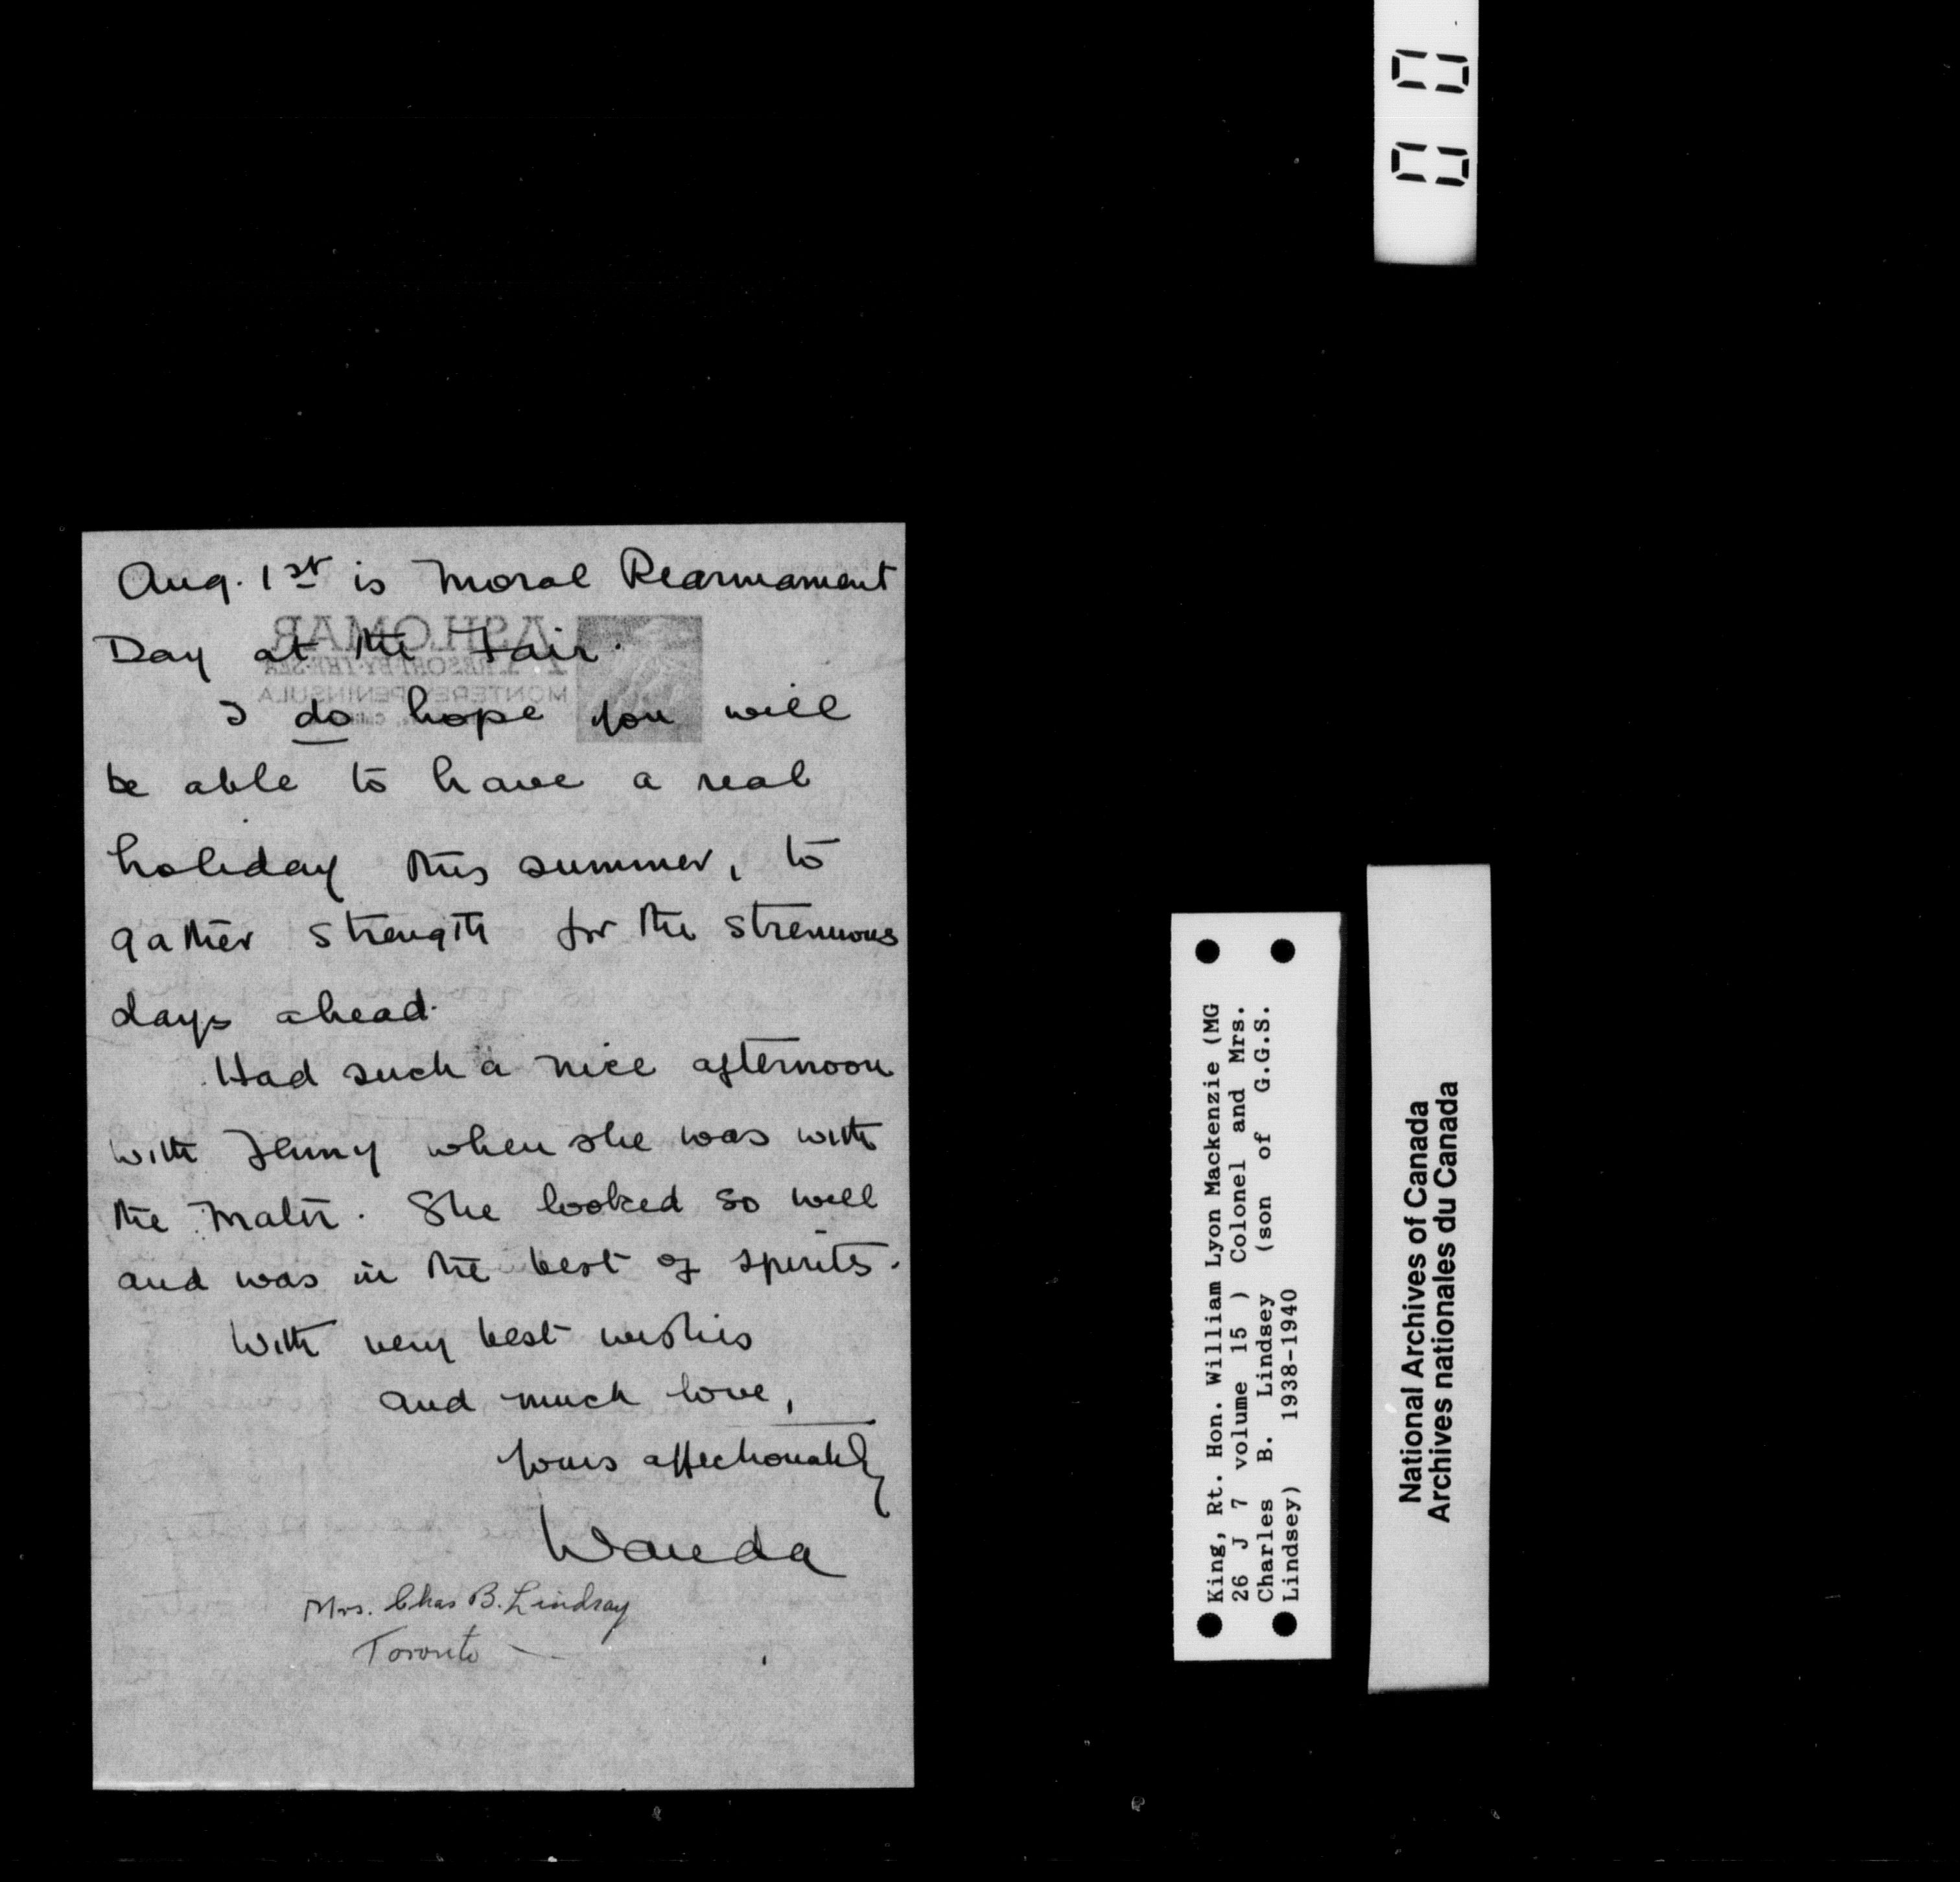 Aug. 1st is Moral Rearmament
Day at the Fair.
I do hope you will
be able to have a real
holiday this summer, to
gather strength for the strenuous
days ahead.
Had such a nice afternoon
with Jenny when she was with
the Mater. She looked so well
and was in the best of spirits.
With very best wishes
and much love,
Yours affectionately
Wanda
Mrs. Chas B. Lindsay
Toronto
ASILOMAR
A RESORT-BY-THE-SEA
MONTEREY PENINSULA
King, Rt. Hon. William Lyon Mackenzie (MG
26 J 7 volume 15 ) Colonel and Mrs.
Charles B. Lindsey (son of G.G.S.
Lindsey) 1938-1940
National Archives of Canada
Archives nationales du Canada